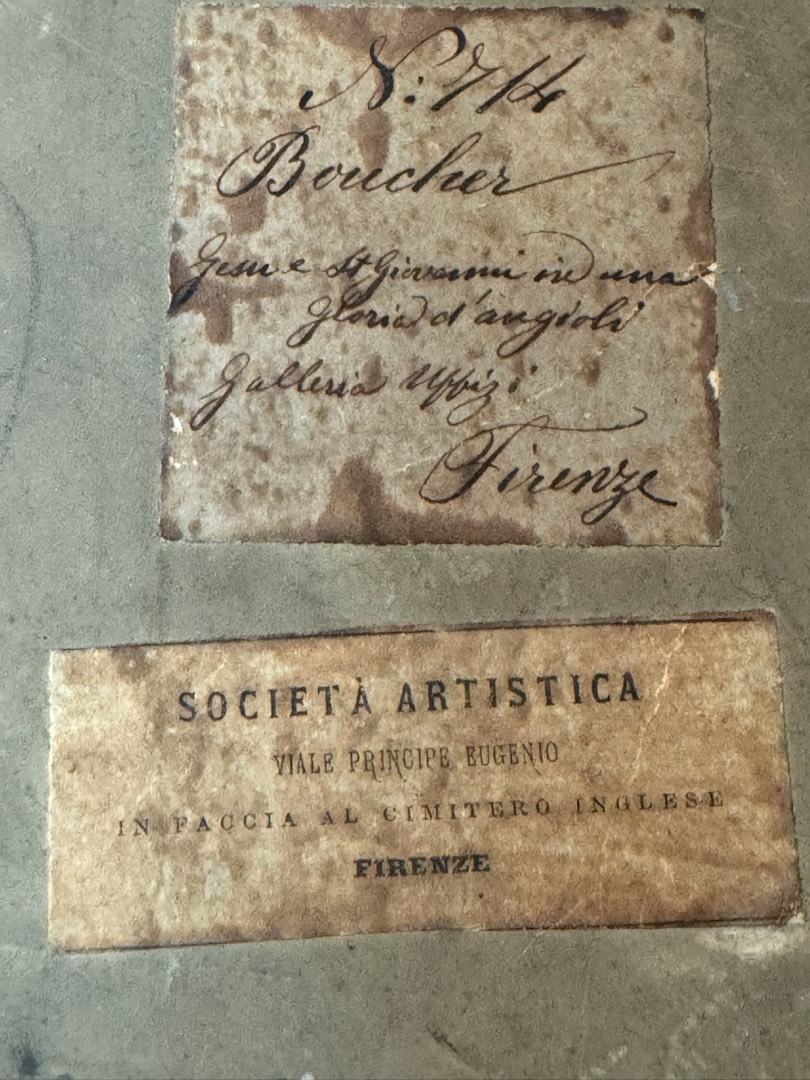 N: 714
Boucher
Gesu e St Giovanni in una
gloria d'angioli
Galleria Uffizi
Firenze
SOCIETÀ ARTISTICA
VIALE PRINCIPE EUGENIO
IN FACCIA AL CIMITERO INGLESE
FIRENZE